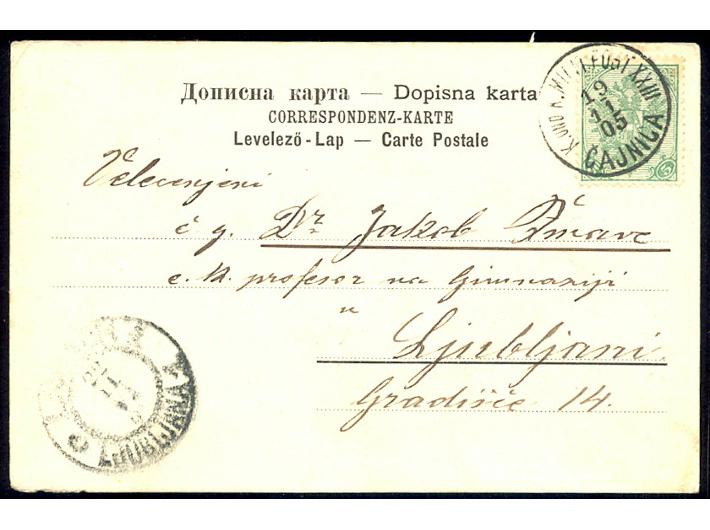 Дописна карта — Dopisna karta
CORRESPONDENZ-KARTE
Levelező - Lap — Carte Postale
K. UND K. MILIT. POST XXIII
19
11
05
ČAJNICA
5
Velecenjeni
č. g. Dr Jakob Žmavc
c. k. profesor na Gimnaziji
u
Ljubljani
Gradišče 14.
LJUBLJANA